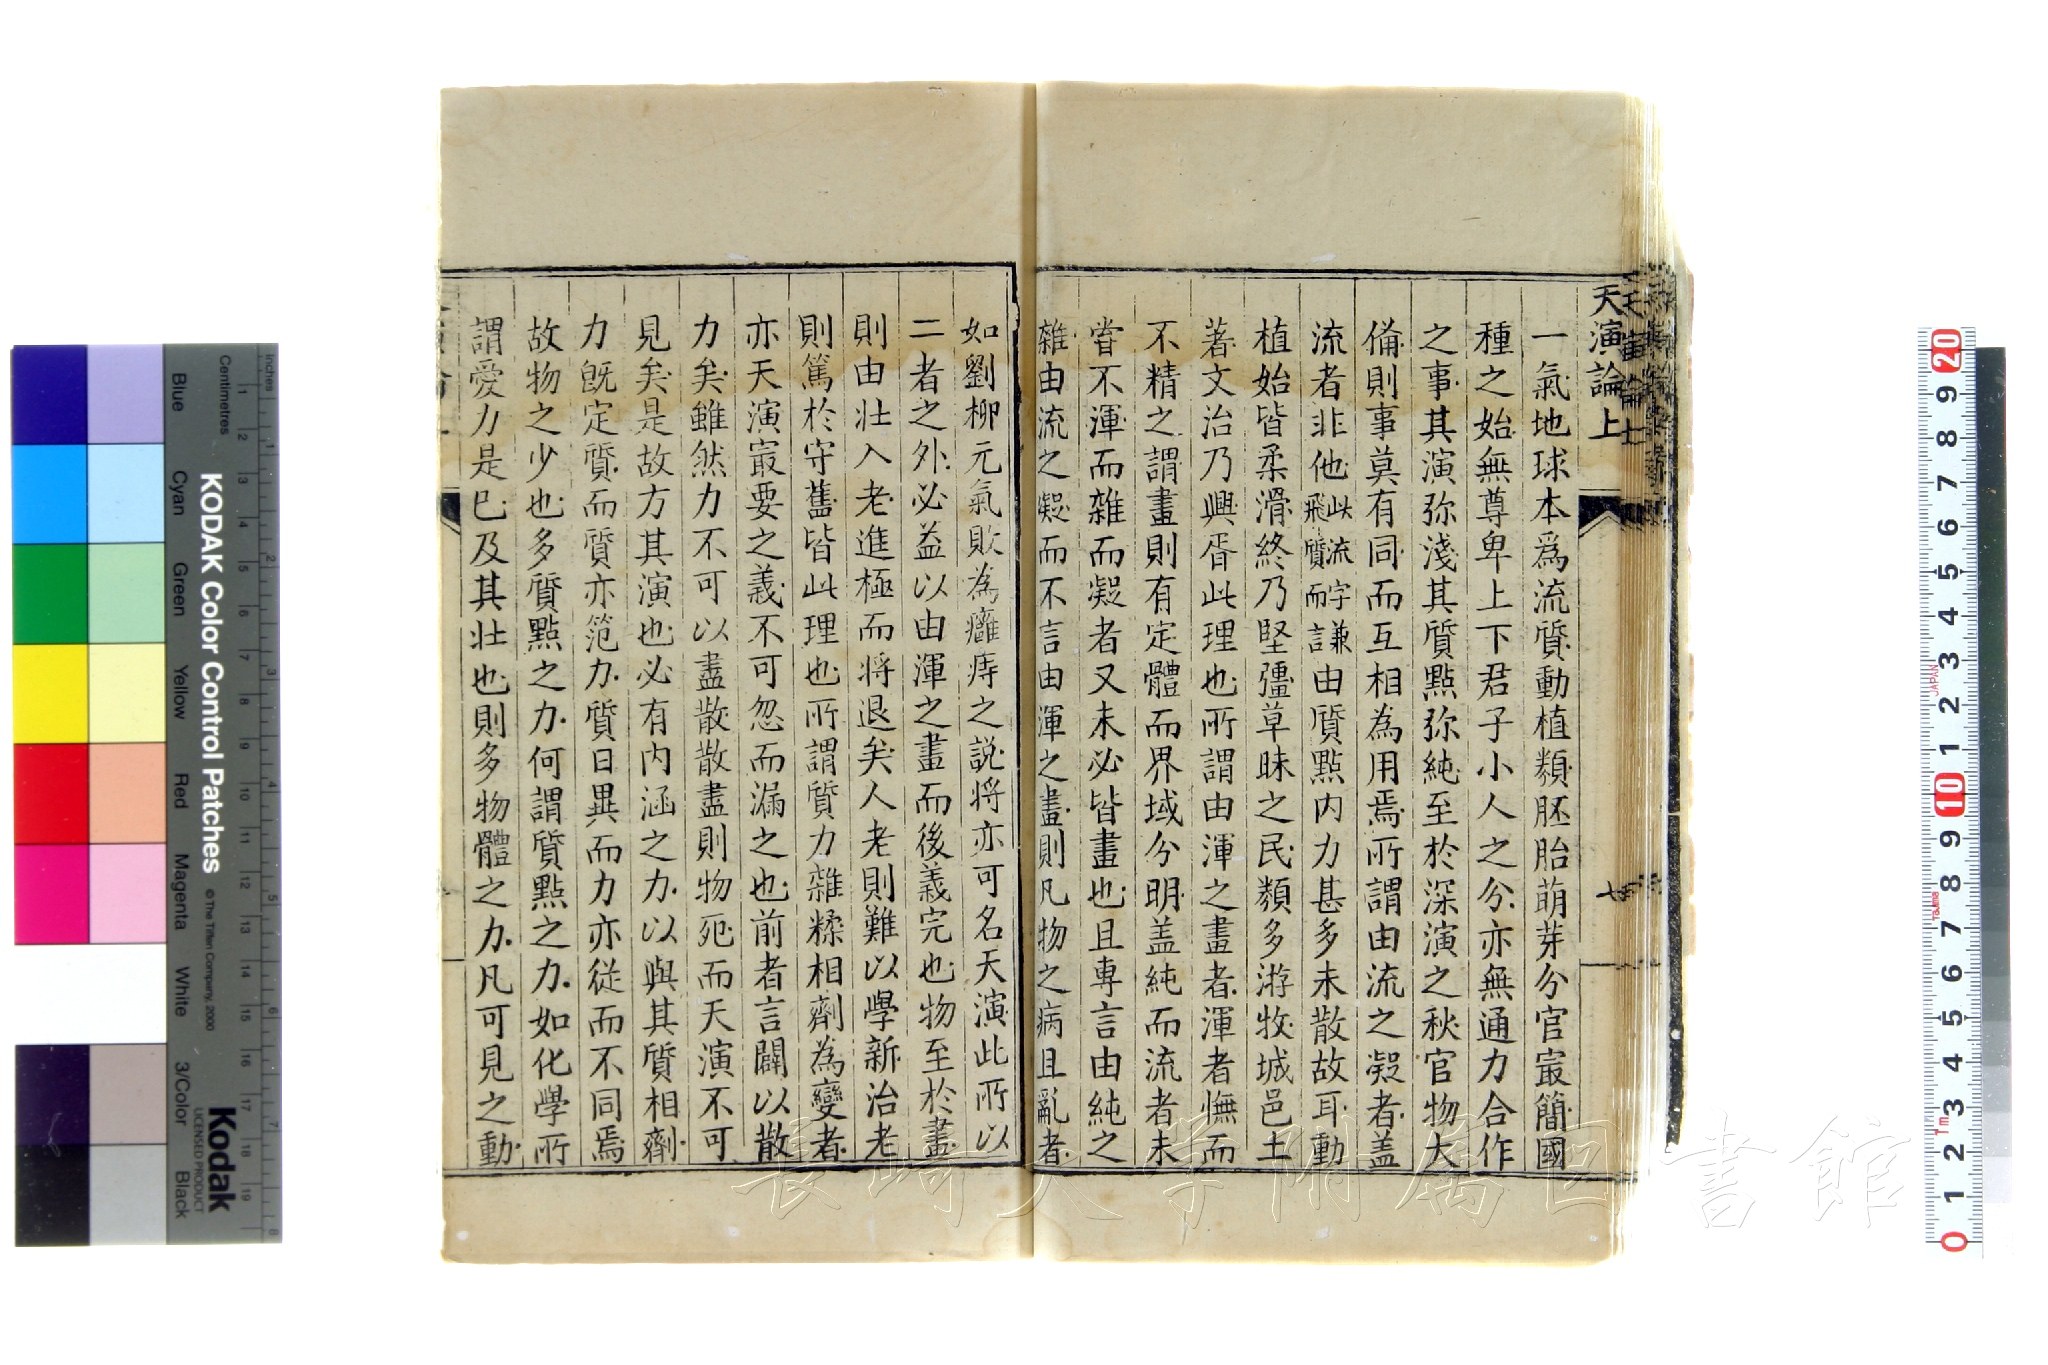 天演論上
七
一氣地球本爲流質動植類胚胎萌芽分官㝡簡國
種之始無尊卑上下君子小人之分亦無通力合作
之事其演弥淺其質點弥純至於深演之秋官物大
僃則事莫有同而互相為用焉所謂由流之凝者蓋
流者非他此流字謙飛質而言由質點内力甚多未散故耳動
植始皆柔滑終乃堅彊草昧之民類多游牧城邑土
著文治乃興胥此理也所謂由渾之畫者渾者憮而
不精之謂畫則有定體而界域分明蓋純而流者未
嘗不渾而雜而凝者又未必皆畫也且專言由純之
雜由流之凝而不言由渾之畫則凡物之病且亂者
如劉柳元氣敗為癰痔之説將亦可名天演此所以
二者之外必益以由渾之畫而後義完也物至於畫
則由壯入老進極而將退矣人老則難以學新治老
則篤於守舊皆此理也所謂質力雜糅相劑為變者
亦天演㝡要之義不可忽而漏之也前者言闢以散
力矣雖然力不可以盡散散盡則物死而天演不可
見矣是故方其演也必有内涵之力以與其質相劑
力旣定質而質亦范力質日異而力亦從而不同焉
故物之少也多質點之力何謂質點之力如化學所
謂愛力是已及其壯也則多物體之力凡可見之動
長崎大学附属図書館
KODAK Color Control Patches
© The Tiffen Company, 2000
Kodak
LICENSED PRODUCT
Inches
Centimetres
Blue
Cyan
Green
Yellow
Red
Magenta
White
3/Color
Black
1 2 3 4 5 6 7 8 9 10 11 12 13 14 15 16 17 18 19
1 2 3 4 5 6 7 8
20 9 8 7 6 5 4 3 2 1 10 9 8 7 6 5 4 3 2 1 0
JAPAN
Tajima